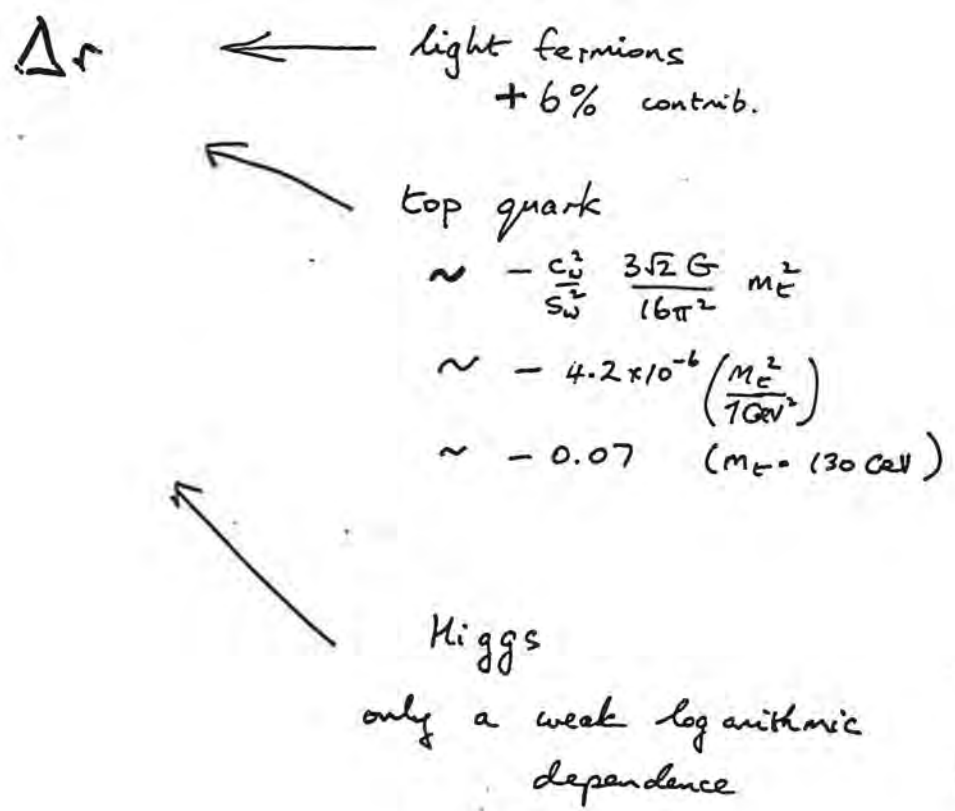 Δr ← light fermions
+ 6% contrib.
top quark
~ - c_w²/s_w² 3√2 G/16π² m_t²
~ - 4.2×10⁻⁶ (m_t²/1GeV²)
~ - 0.07 (m_t = 130 GeV)
Higgs
only a weak logarithmic
dependence